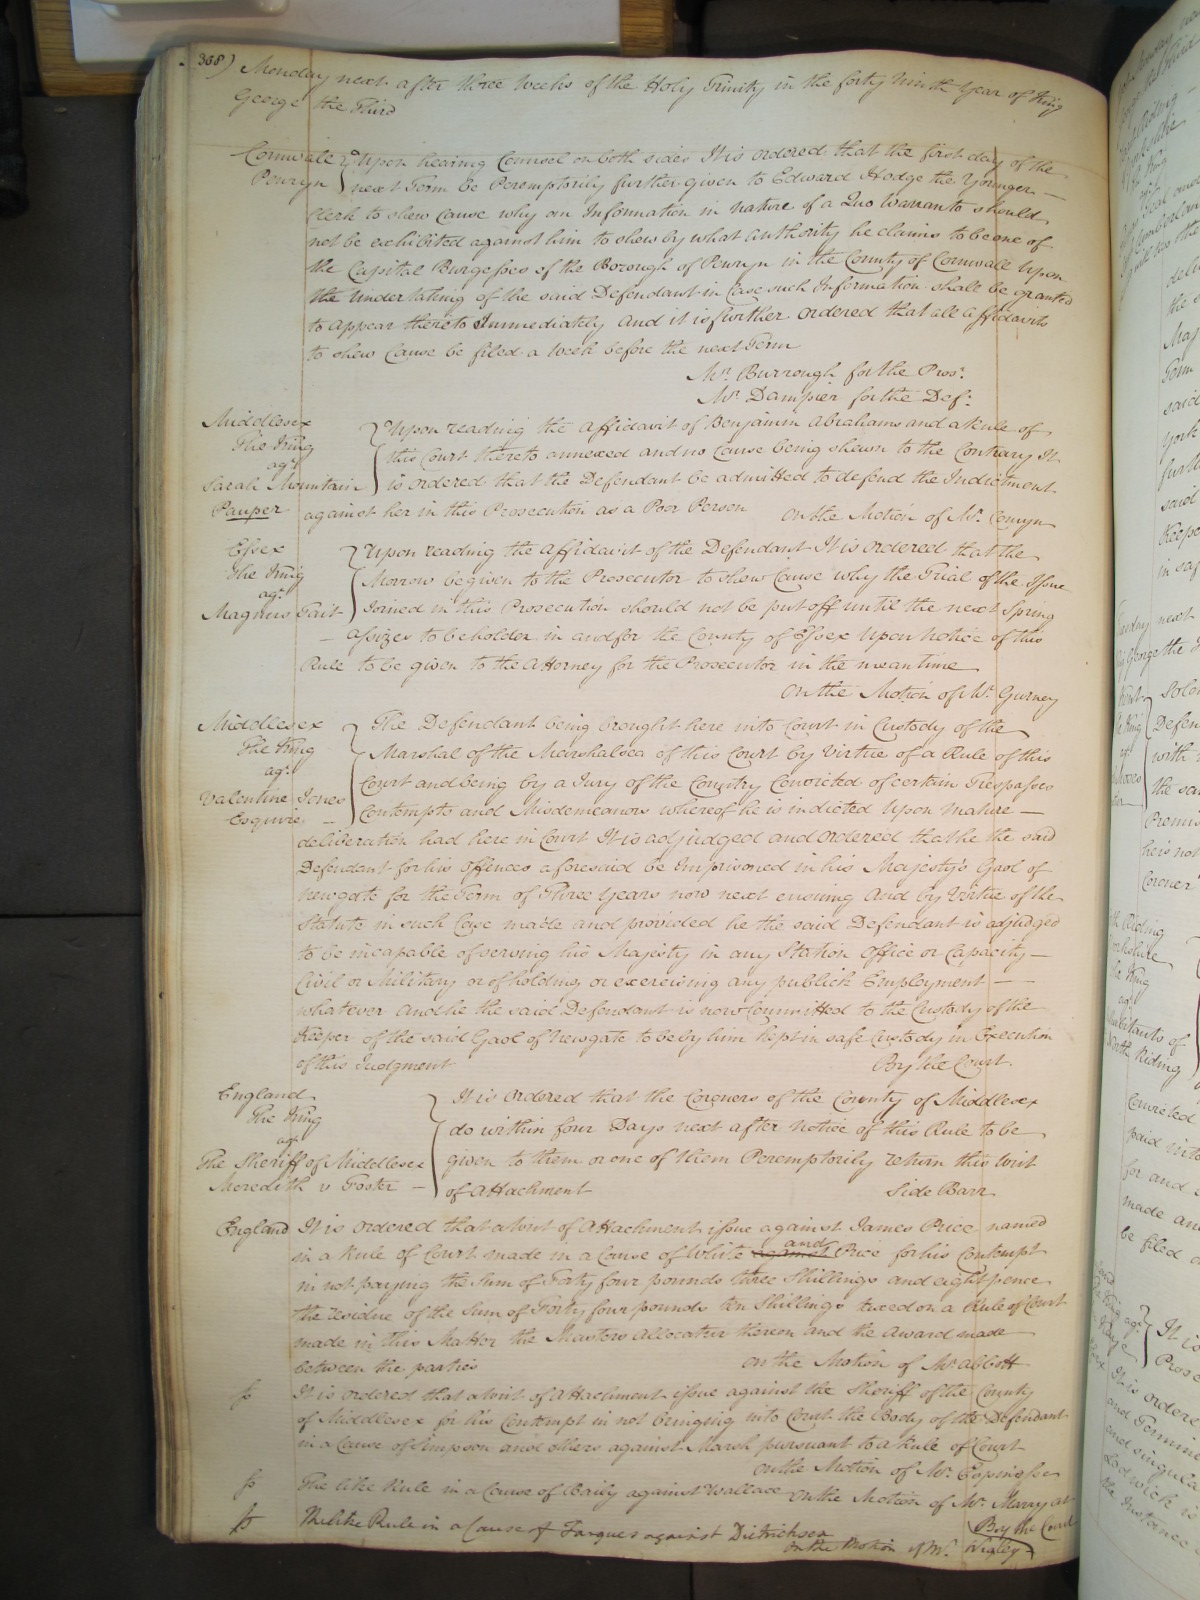 308) Monday next after three Weeks of the Holy Trinity in the forty ninth Year of King
George the Third
Cornwall } Upon hearing Counsel on both sides It is ordered that the first day of the
Penryn } next Term be Peremptorily further given to Edward Hodge the Younger
Clerk to shew Cause why an Information in nature of a Quo Warranto should
not be exhibited against him to shew by what Authority he claims to be one of
the Capital Burgesses of the Borough of Penryn in the County of Cornwall Upon
the Undertaking of the said Defendant in Case such Information shall be granted
to appear thereto Immediately And it is further ordered that all affidavits
to shew Cause be filed a Week before the next Term
Mr. Burrough for the Prosr.
Mr. Dampier for the Deft.
Middlesex } Upon reading the Affidavit of Benjamin Abrahams and a Rule of
The King
agt. this Court thereto annexed and no Cause being shewn to the Contrary It
Sarah Mountain } is ordered that the Defendant be admitted to defend the Indictment
Pauper against her in this Prosecution as a Poor Person On the Motion of Mr. Comyn
Essex } Upon reading the Affidavit of the Defendant It is ordered that the
The King
agt. Morrow be given to the Prosecutor to shew Cause why the Trial of the Issue
Magnus Tait } Joined in this Prosecution should not be put off until the next Spring
– Assizes to be holden in and for the County of Essex Upon Notice of this
Rule to be given to the Attorney for the Prosecutor in the mean time
On the Motion of Mr. Gurney
Middlesex } The Defendant being brought here into Court in Custody of the
The King Marshal of the Marshalsea of this Court by Virtue of a Rule of this
agt.
Valentine Jones Court and being by a Jury of the Country Convicted of certain Trespasses
Esquire – } Contempts and Misdemeanors whereof he is indicted Upon mature –
deliberation had here in Court It is adjudged and Ordered that he the said
Defendant for his Offences aforesaid be Imprisoned in his Majesty's Gaol of
Newgate for the Term of Three Years now next ensuing And by Virtue of the
Statute in such Case made and provided he the said Defendant is adjudged
to be incapable of serving his Majesty in any Station Office or Capacity –
Civil or Military or of holding or exercising any publick Employment – –
whatever And he the said Defendant is now Committed to the Custody of the
Keeper of the said Gaol of Newgate to be by him kept in safe Custody in Execution
of this Judgment By the Court.
England } It is Ordered that the Coroners of the County of Middlesex
The King
agt. do within four Days next after notice of this Rule to be
The Sheriff of Middlesex given to them or one of them Peremptorily return this Writ
Meredith v Foster – } of Attachment Side Barr
England It is ordered that a Writ of Attachment issue against James Price named
in a Rule of Court made in a Cause of White against and Price for his Contempt
in not paying the Sum of Forty four pounds three Shillings and eight pence
the residue of the Sum of Forty four pounds ten Shillings taxed on a Rule of Court
made in this Matter the Masters Allocatur thereon and the Award made
between the parties On the Motion of Mr. Abbott
It is ordered that a Writ of Attachment issue against the Sheriff of the County
of Middlesex for his Contempt in not bringing into Court the Body of the Defendant
in a Cause of Simpson and others against Marsh pursuant to a Rule of Court
On the Motion of Mr. Espinasse
The like Rule in a Cause of Baily against Wallace On the Motion of Mr. Marryat
By the Court
The like Rule in a Cause of Farques against Dietrichsen
On the Motion of Mr. Wigley